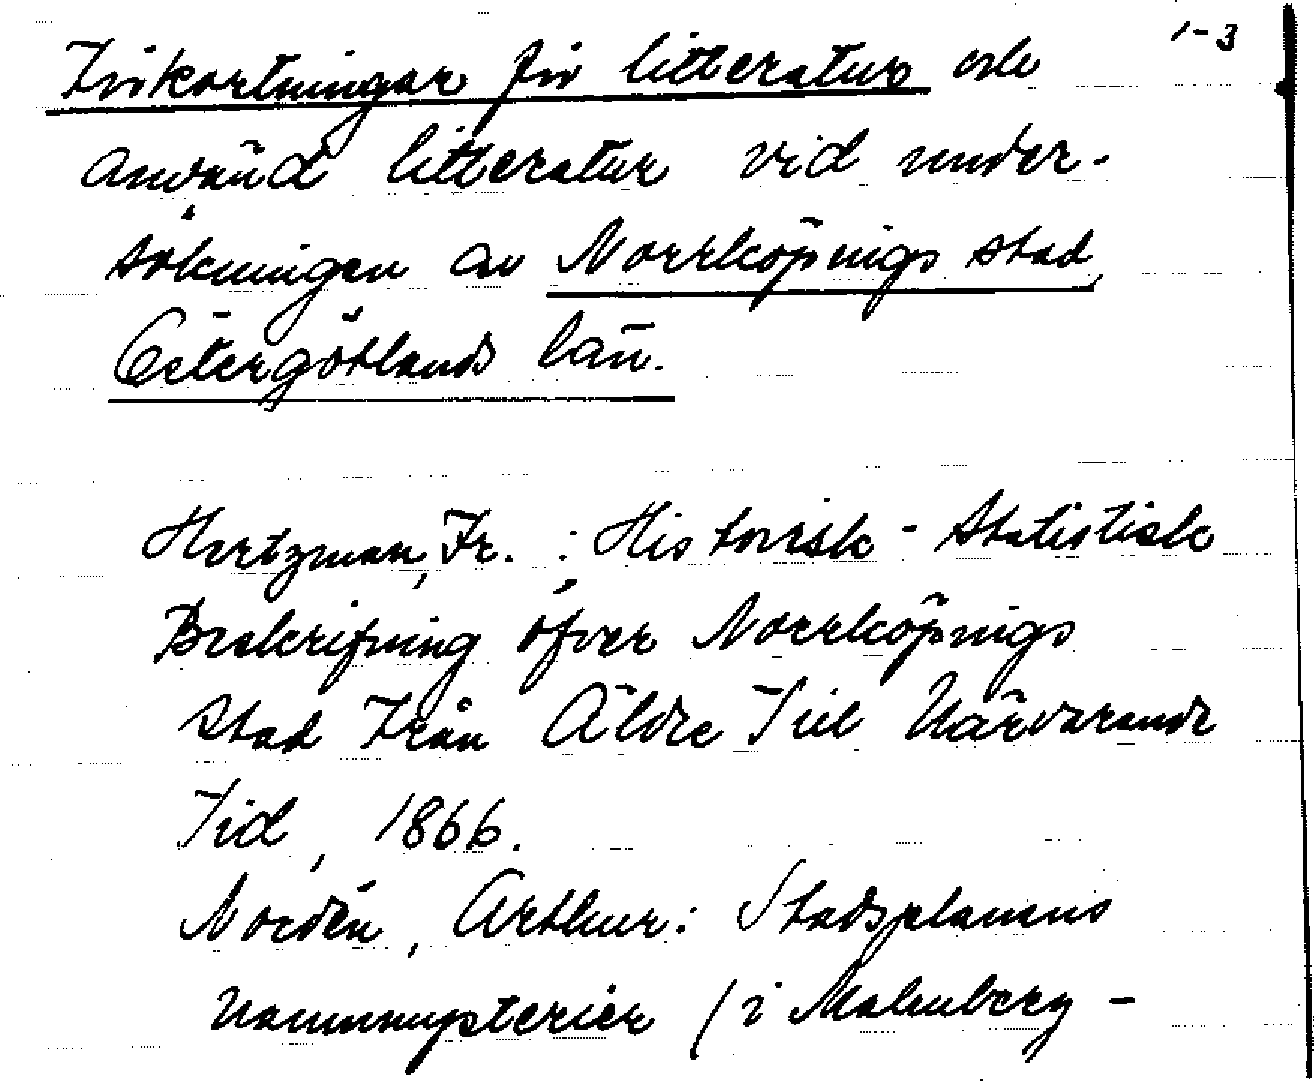 1-3
Förkortningar för litteratur och
använd litteratur vid under-
sökningen av Norrköpings stad,
Östergötlands län.
Hertzman, Fr. : Historisk - Statistisk
Beskrifning öfver Norrköpings
Stad Från Äldre Till Närvarande
Tid, 1866.
Nordén, Arthur: Stadsplanens
namnmysterier (i Malmberg -